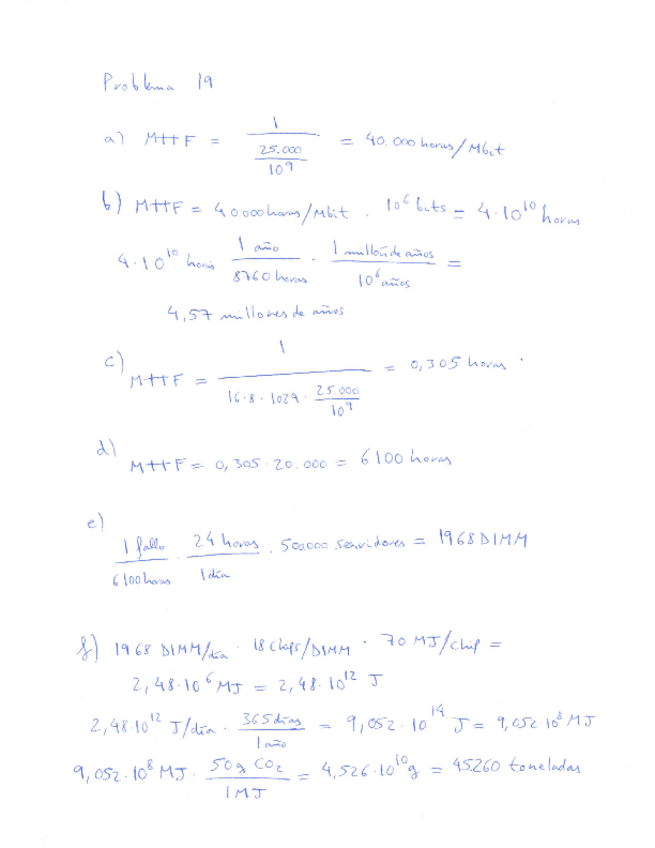 Problema 19
a) MTTF = 1 / (25.000 / 10⁹) = 40.000 horas/Mbit
b) MTTF = 40000horas/Mbit · 10⁶ bits = 4·10¹⁰ horas
4·10¹⁰ horas · 1 año / 8760 horas · 1 millón de años / 10⁶ años =
4,57 millones de años
c) MTTF = 1 / (16·8·1024 · 25.000 / 10⁹) = 0,305 horas
d) MTTF = 0,305·20.000 = 6100 horas
e) 1 fallo / 6100 horas · 24 horas / 1 día · 500000 servidores = 1968 DIMM
f) 1968 DIMM/día · 18 chips/DIMM · 70 MJ/chip =
2,48·10⁶ MJ = 2,48·10¹² J
2,48·10¹² J/día · 365 días / 1 año = 9,052·10¹⁴ J = 9,052·10⁸ MJ
9,052·10⁸ MJ · 50g CO₂ / 1 MJ = 4,526·10¹⁰ g = 45260 toneladas